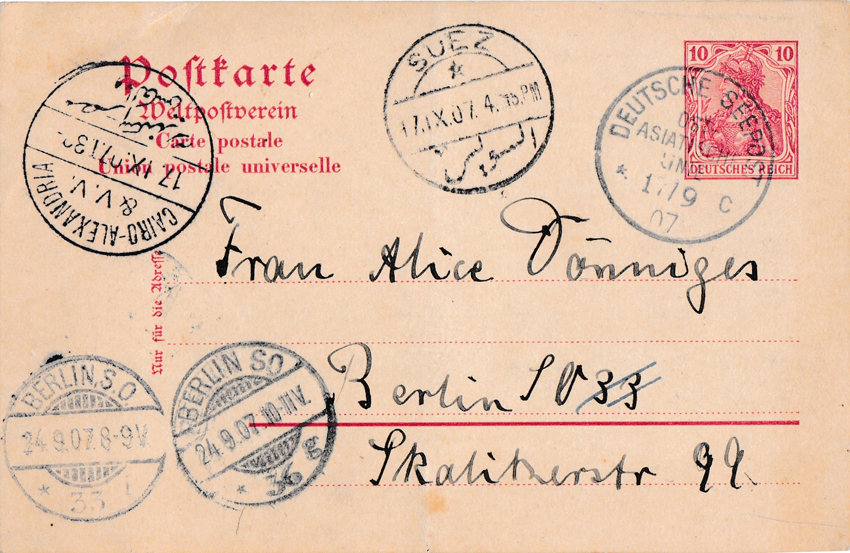 Postkarte
Weltpostverein
Carte postale
Union postale universelle
Nur für die Adresse
10 10
DEUTSCHES REICH
SUEZ
17.IX.07. 4.15.PM
السويس
DEUTSCHE SEEPOST
OST-
ASIATISCHE
LINIE
* 17/9 C
07
17.IX.07.
CAIRO-ALEXANDRIA
& V.V.
Frau Alice Dönniges
Berlin SO 33
Skalitzerstr 99.
BERLIN, S.O.
24.9.07. 8-9V.
* 33 i
BERLIN SO
24.9.07. 10-11V.
* 36 g